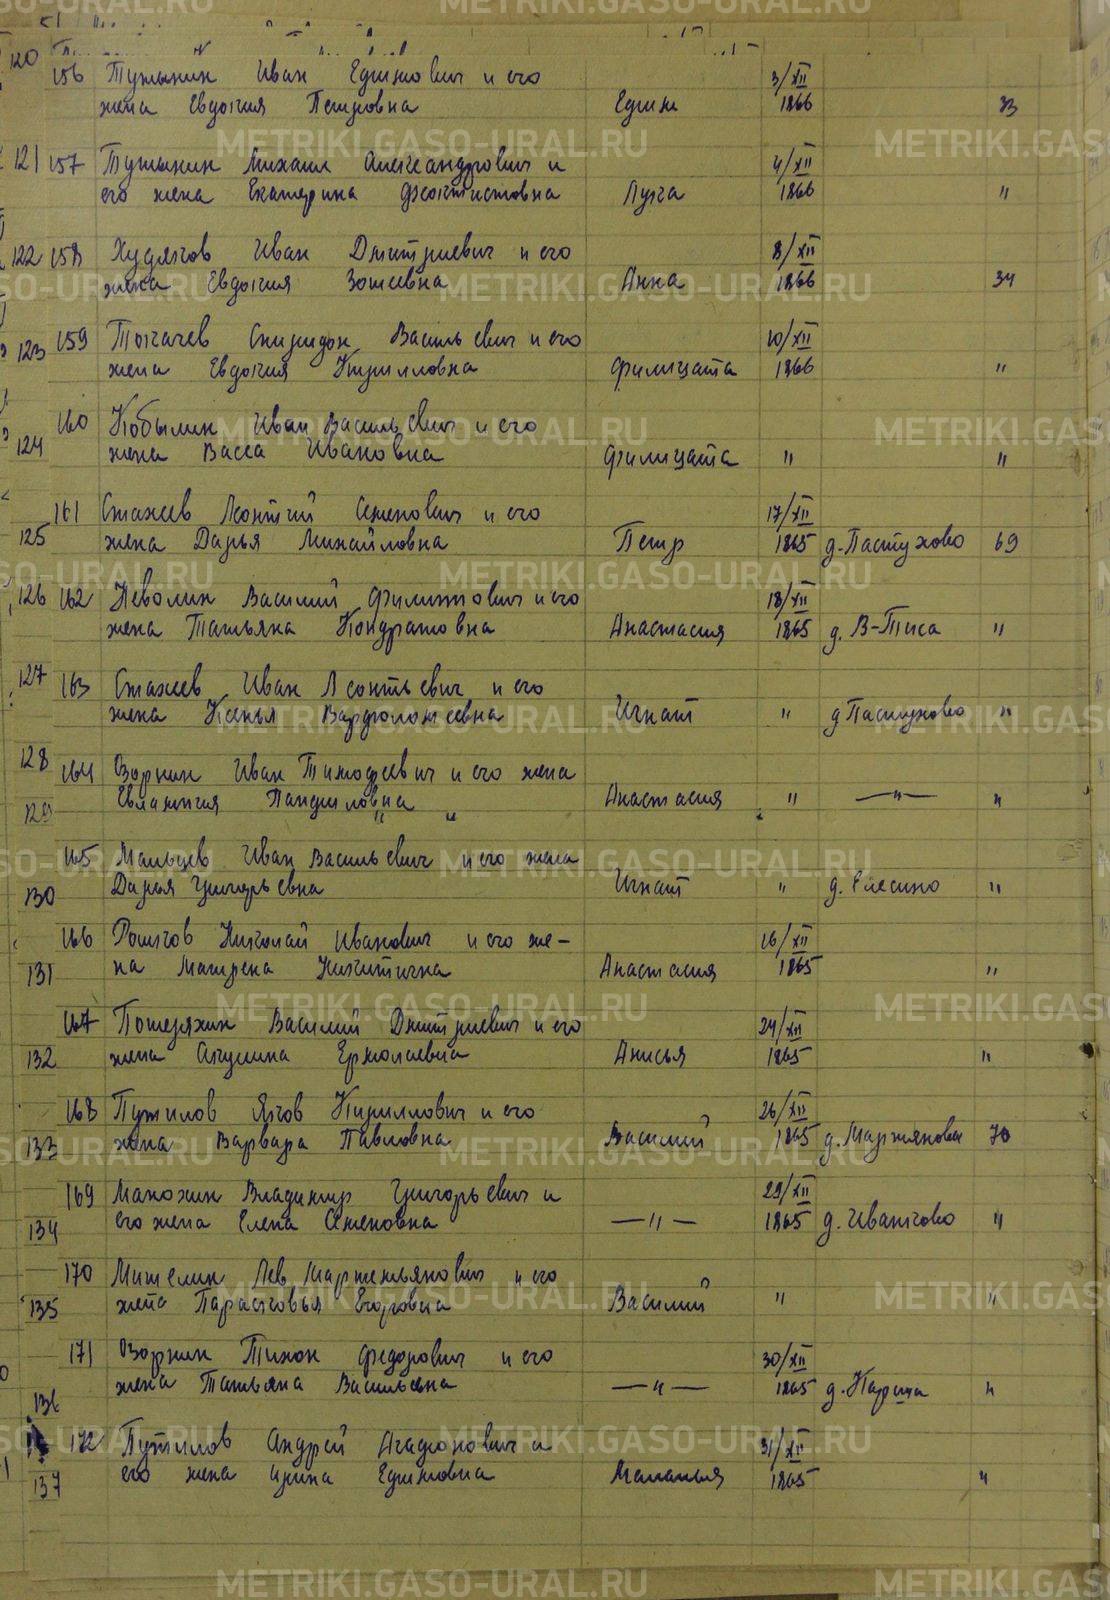 120 156 Тужикин Иван Ефимович и его 3/XII
жена Евдокия Петровна Ефим 1866 33
121 157 Михаил Александрович и 4/XII
его жена Екатерина Феоктистовна Лука 1866 "
122 158 Худяков Иван Дмитриевич и его 8/XII
жена Евдокия Зотеевна Анна 1866 34
123 159 Токачев Спиридон Васильевич и его 10/XII
жена Евдокия Кирилловна Филицата 1866 "
124 160 Кобылин Иван Васильевич и его
жена Васса Ивановна Филицата " "
161 Стахеев Леонтий Семенович и его 17/XII
125 жена Дарья Михайловна Петр 1865 д. Пастухово 69
126 162 Неволин Василий Филиппович и его 18/XII
жена Татьяна Кондратовна Анастасия 1865 д. В-Тиса "
127 163 Стахеев Иван Леонтьевич и его
жена Ксенья Варфоломеевна Игнат " д Пастухово "
128 164 Зорнин Иван Тимофеевич и его жена
129 Евлампия Панфиловна Анастасия " —"— "
165 Мальцев Иван Васильевич и его жена
130 Дарья Григорьевна Игнат " д. "
166 Николай Иванович и его же-
16/XII
131 на Матрена Никитична Анастасия 1865 "
167 Потеряхин Василий Дмитриевич и его 24/XII
132 жена Акулина Ермолаевна Анисья 1865 "
168 Путилов Яков Кириллович и его 26/XII
133 жена Варвара Павловна Василий 1865 д. Мартьянова 70
169 Манохин Владимир Григорьевич и 29/XII
134 его жена Елена Семеновна —"— 1865 д. Иваньково "
170 Мителин Лев Мартемьянович и его
135 жена Парасковья Егоровна Василий " "
171 Зорнин Тихон Федорович и его 30/XII
136 жена Татьяна Васильевна —"— 1865 д. "
172 Путилов Андрей Агафонович и 31/XII
137 его жена Ирина Ефимовна Маланья 1865 "
METRIKI.GASO-URAL.RU